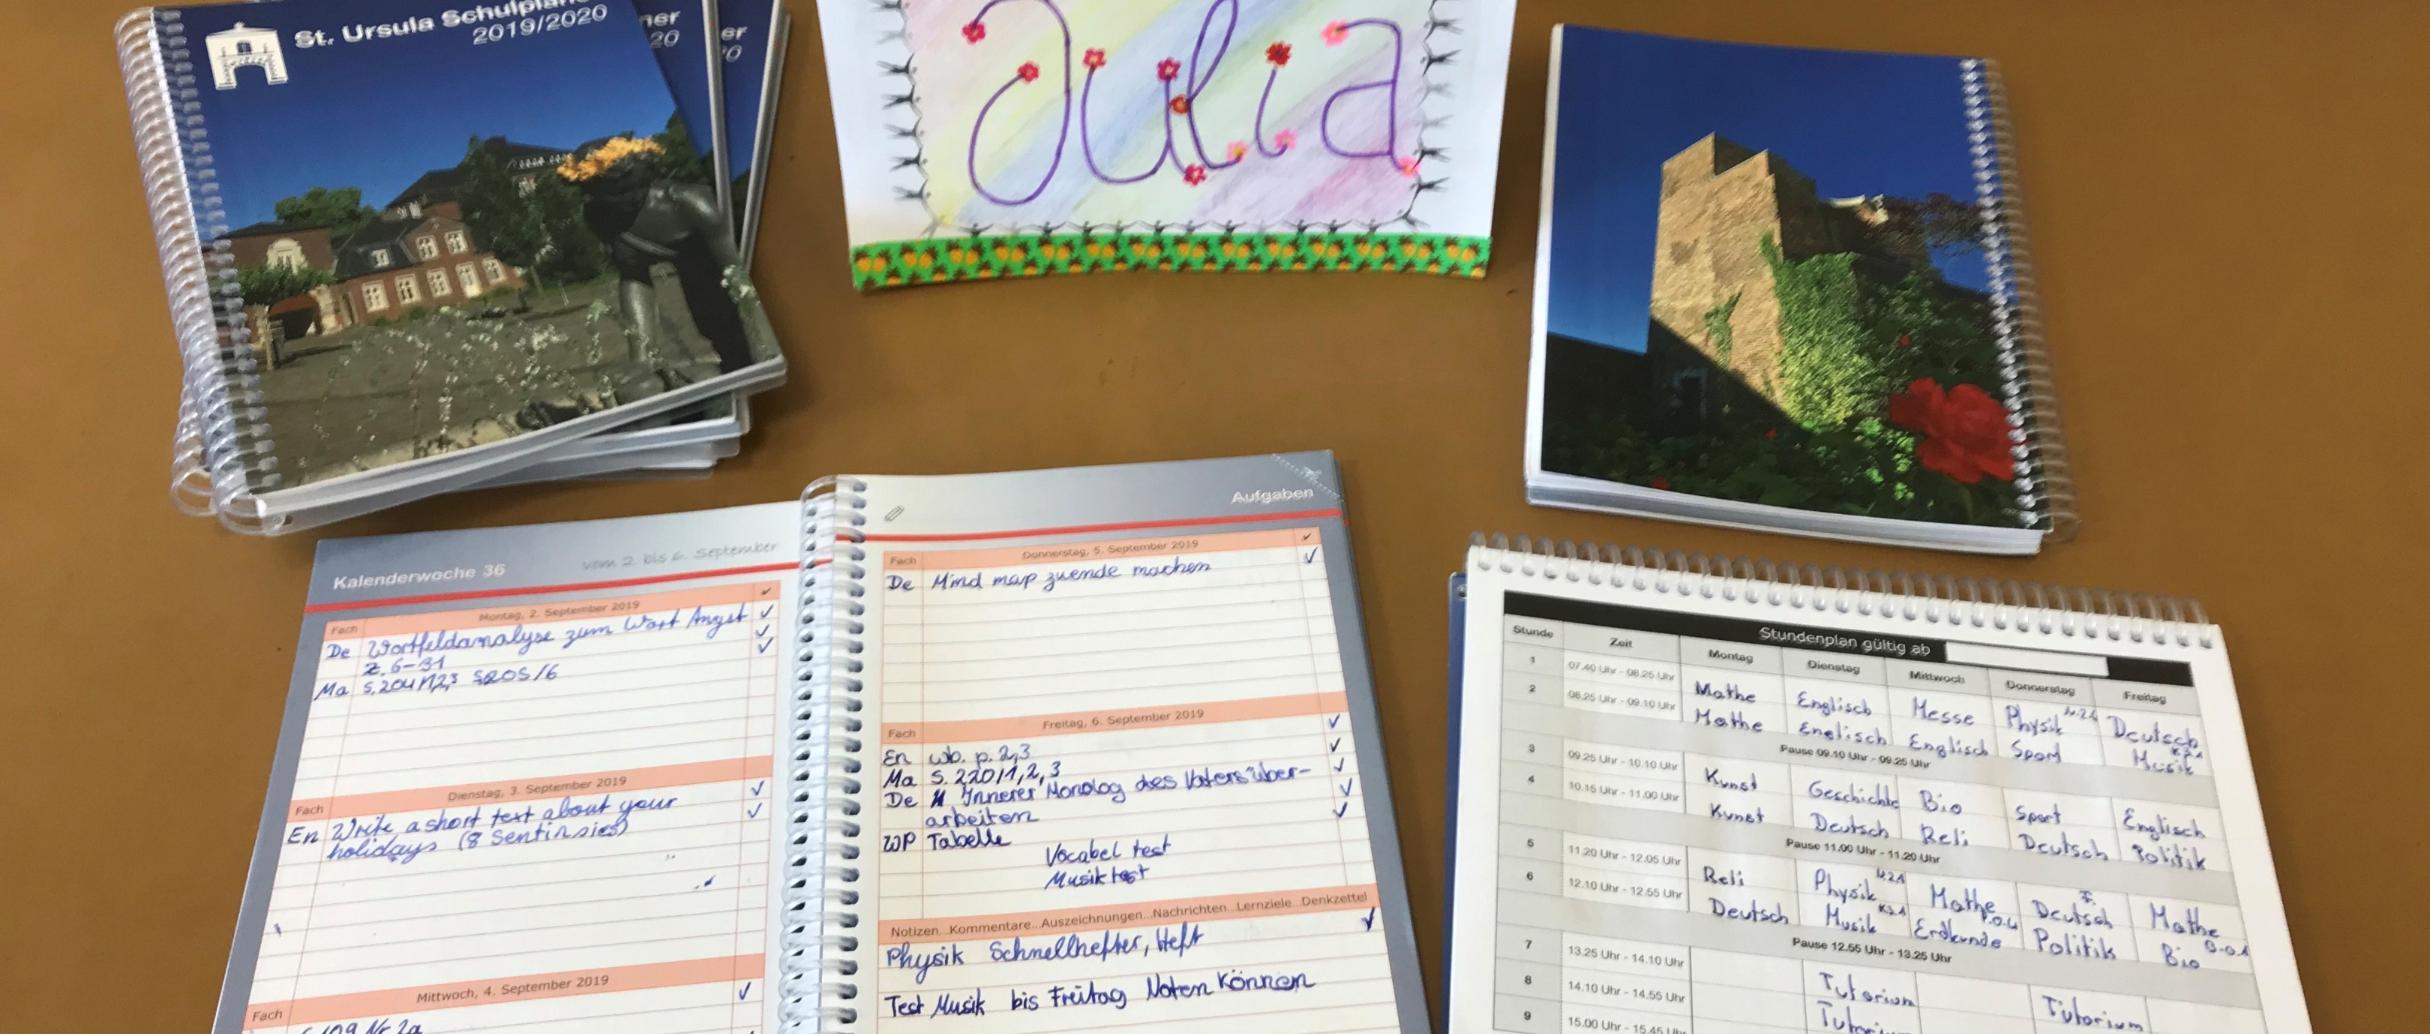 St. Ursula Schulplaner
2019/2020
ner
20
er
0
Julia
Kalenderwoche 36
vom 2. bis 6. September
Fach Montag, 2. September 2019 ✓
De Wortfeldanalyse zum Wort Angst ✓
Z. 6-31 ✓
Ma S. 204/1,2,3 S205/6 ✓
Fach Dienstag, 3. September 2019
En Write a short text about your ✓
holidays (8 Sentinsies) ✓
Fach Mittwoch, 4. September 2019 ✓
Aufgaben
Fach Donnerstag, 5. September 2019 ✓
De Mind map zuende machen ✓
Fach Freitag, 6. September 2019
En wb. p. 2,3 ✓
Ma S. 220/1,2,3 ✓
De Innerer Monolog des Vaters über- ✓
arbeiten ✓
WP Tabelle ✓
Vocabel test
Musiktest
Notizen...Kommentare...Auszeichnungen...Nachrichten...Lernziele...Denkzettel
Physik Schnellhefter, Heft ✓
Test Musik bis Freitag Noten können
Stundenplan gültig ab
Stunde Zeit Montag Dienstag Mittwoch Donnerstag Freitag
1 07.40 Uhr - 08.25 Uhr Mathe Englisch Messe Physik Deutsch
2 08.25 Uhr - 09.10 Uhr Mathe Englisch Englisch Sport Musik
Pause 09.10 Uhr - 09.25 Uhr
3 09.25 Uhr - 10.10 Uhr Kunst Geschichte Bio Sport Englisch
4 10.15 Uhr - 11.00 Uhr Kunst Deutsch Reli Deutsch Politik
Pause 11.00 Uhr - 11.20 Uhr
5 11.20 Uhr - 12.05 Uhr Reli Physik Mathe Deutsch Mathe
6 12.10 Uhr - 12.55 Uhr Deutsch Musik Erdkunde Politik Bio
Pause 12.55 Uhr - 13.25 Uhr
7 13.25 Uhr - 14.10 Uhr Tutorium Tutorium
8 14.10 Uhr - 14.55 Uhr
9 15.00 Uhr - 15.45 Uhr